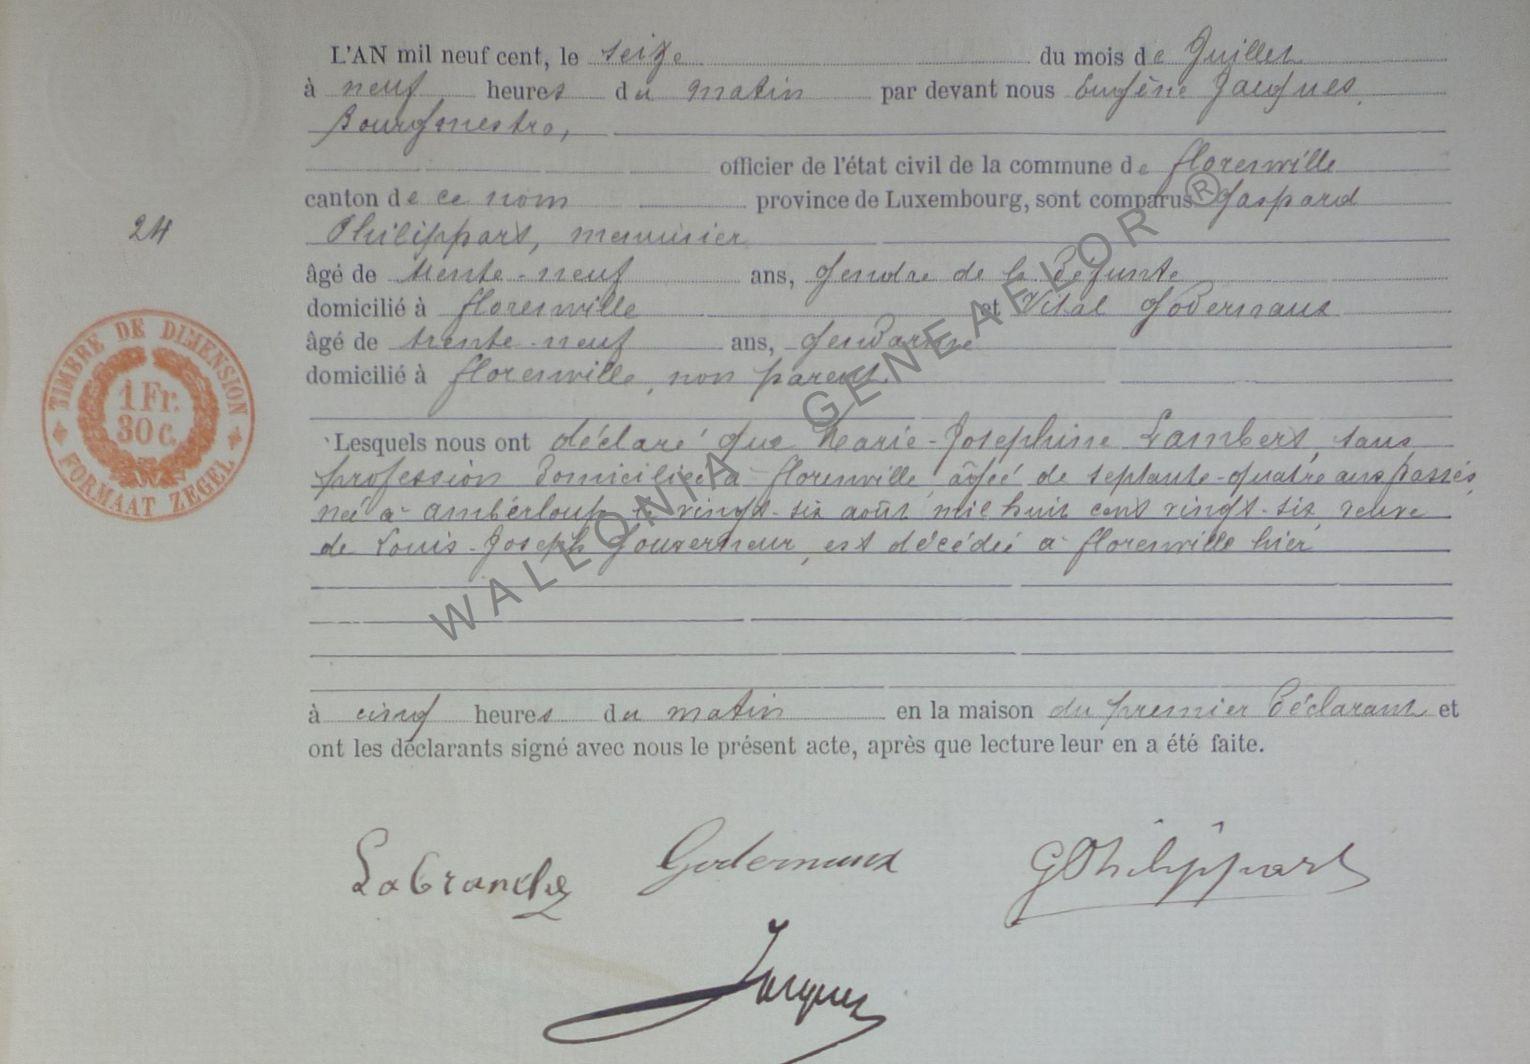 L'AN mil neuf cent, le seize du mois de Juillet
à neuf heures du matin par devant nous Eugène Jacques
Bourgmestre,
officier de l'état civil de la commune de florenville
canton de ce nom province de Luxembourg, sont comparus Gaspard
24
Philippart, menuisier
âgé de trente-neuf ans, gendre de la défunte
domicilié à florenville et Vital Godernaux
âgé de trente-neuf ans, gendarme
domicilié à florenville, non parent
TIMBRE DE DIMENSION
1 Fr.
30 c.
FORMAAT ZEGEL
Lesquels nous ont déclaré que Marie-Josephine Lambert, sans
profession domiciliée à florenville, âgée de septante-quatre ans passés,
née à amberloup le vingt-six août mil huit cent vingt-six, veuve
de Louis-Joseph Gouverneur, est décédée à florenville hier
à cinq heures du matin en la maison du premier déclarant et
ont les déclarants signé avec nous le présent acte, après que lecture leur en a été faite.
Godernaux GPhilippart
Jacques
WALLONIA GENEAFLOR ®